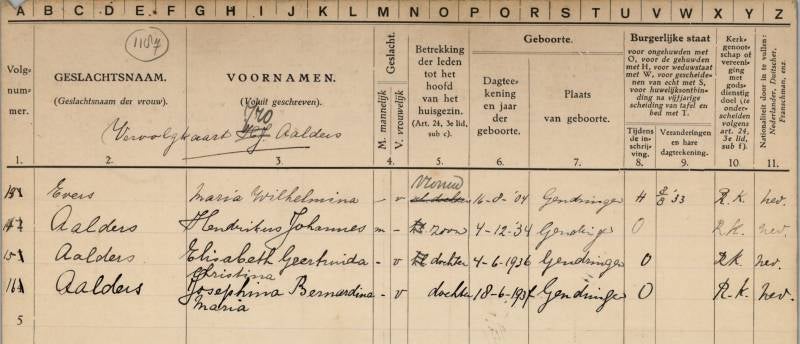 A B C D E F G H I J K L M N O P Q R S T U V W X Y Z
1187
Volg-
num-
mer.
GESLACHTSNAAM.
(Geslachtsnaam der vrouw).
VOORNAMEN.
(Voluit geschreven).
Vervolgkaart Aalders
Geslacht.
M. mannelijk
V. vrouwelijk
Betrekking
der leden
tot het
hoofd
van het
huisgezin.
(Art. 24, 3e lid,
sub c).
Geboorte.
Dagtee-
kening
en jaar
der
geboorte.
Plaats
van geboorte.
Burgerlijke staat
voor ongehuwden met
O, voor de gehuwden
met H, voor weduwstaat
met W, voor gescheide-
nen van echt met S,
voor huwelijksontbin-
ding na vijfjarige
scheiding van tafel en
bed met T.
Tijdens
de in-
schrij-
ving.
Veranderingen
en hare
dagteekening.
Kerk-
genoot-
schap of
vereeni-
ging
met
gods-
dienstig
doel (te
onder-
scheiden
volgens
art. 24,
3e lid,
sub f).
Nationaliteit door in te vullen:
Nederlander, Duitscher,
Franschman, enz.
1. 2. 3. 4. 5. 6. 7. 8. 9. 10. 11.
Evers Maria Wilhelmina - v vrouw 16-8-'04 Gendringen H '33 R.K. ned.
Aalders Hendrikus Johannes m - zoon 4-12-'34 Gendringen O R.K. ned.
Aalders Elisabeth Geertruida - v dochter 4-6-1936 Gendringen O R.K. ned.
Christina
Aalders Josephina Bernardina - v dochter 18-6-1937 Gendringen O R.K. ned.
Maria
5